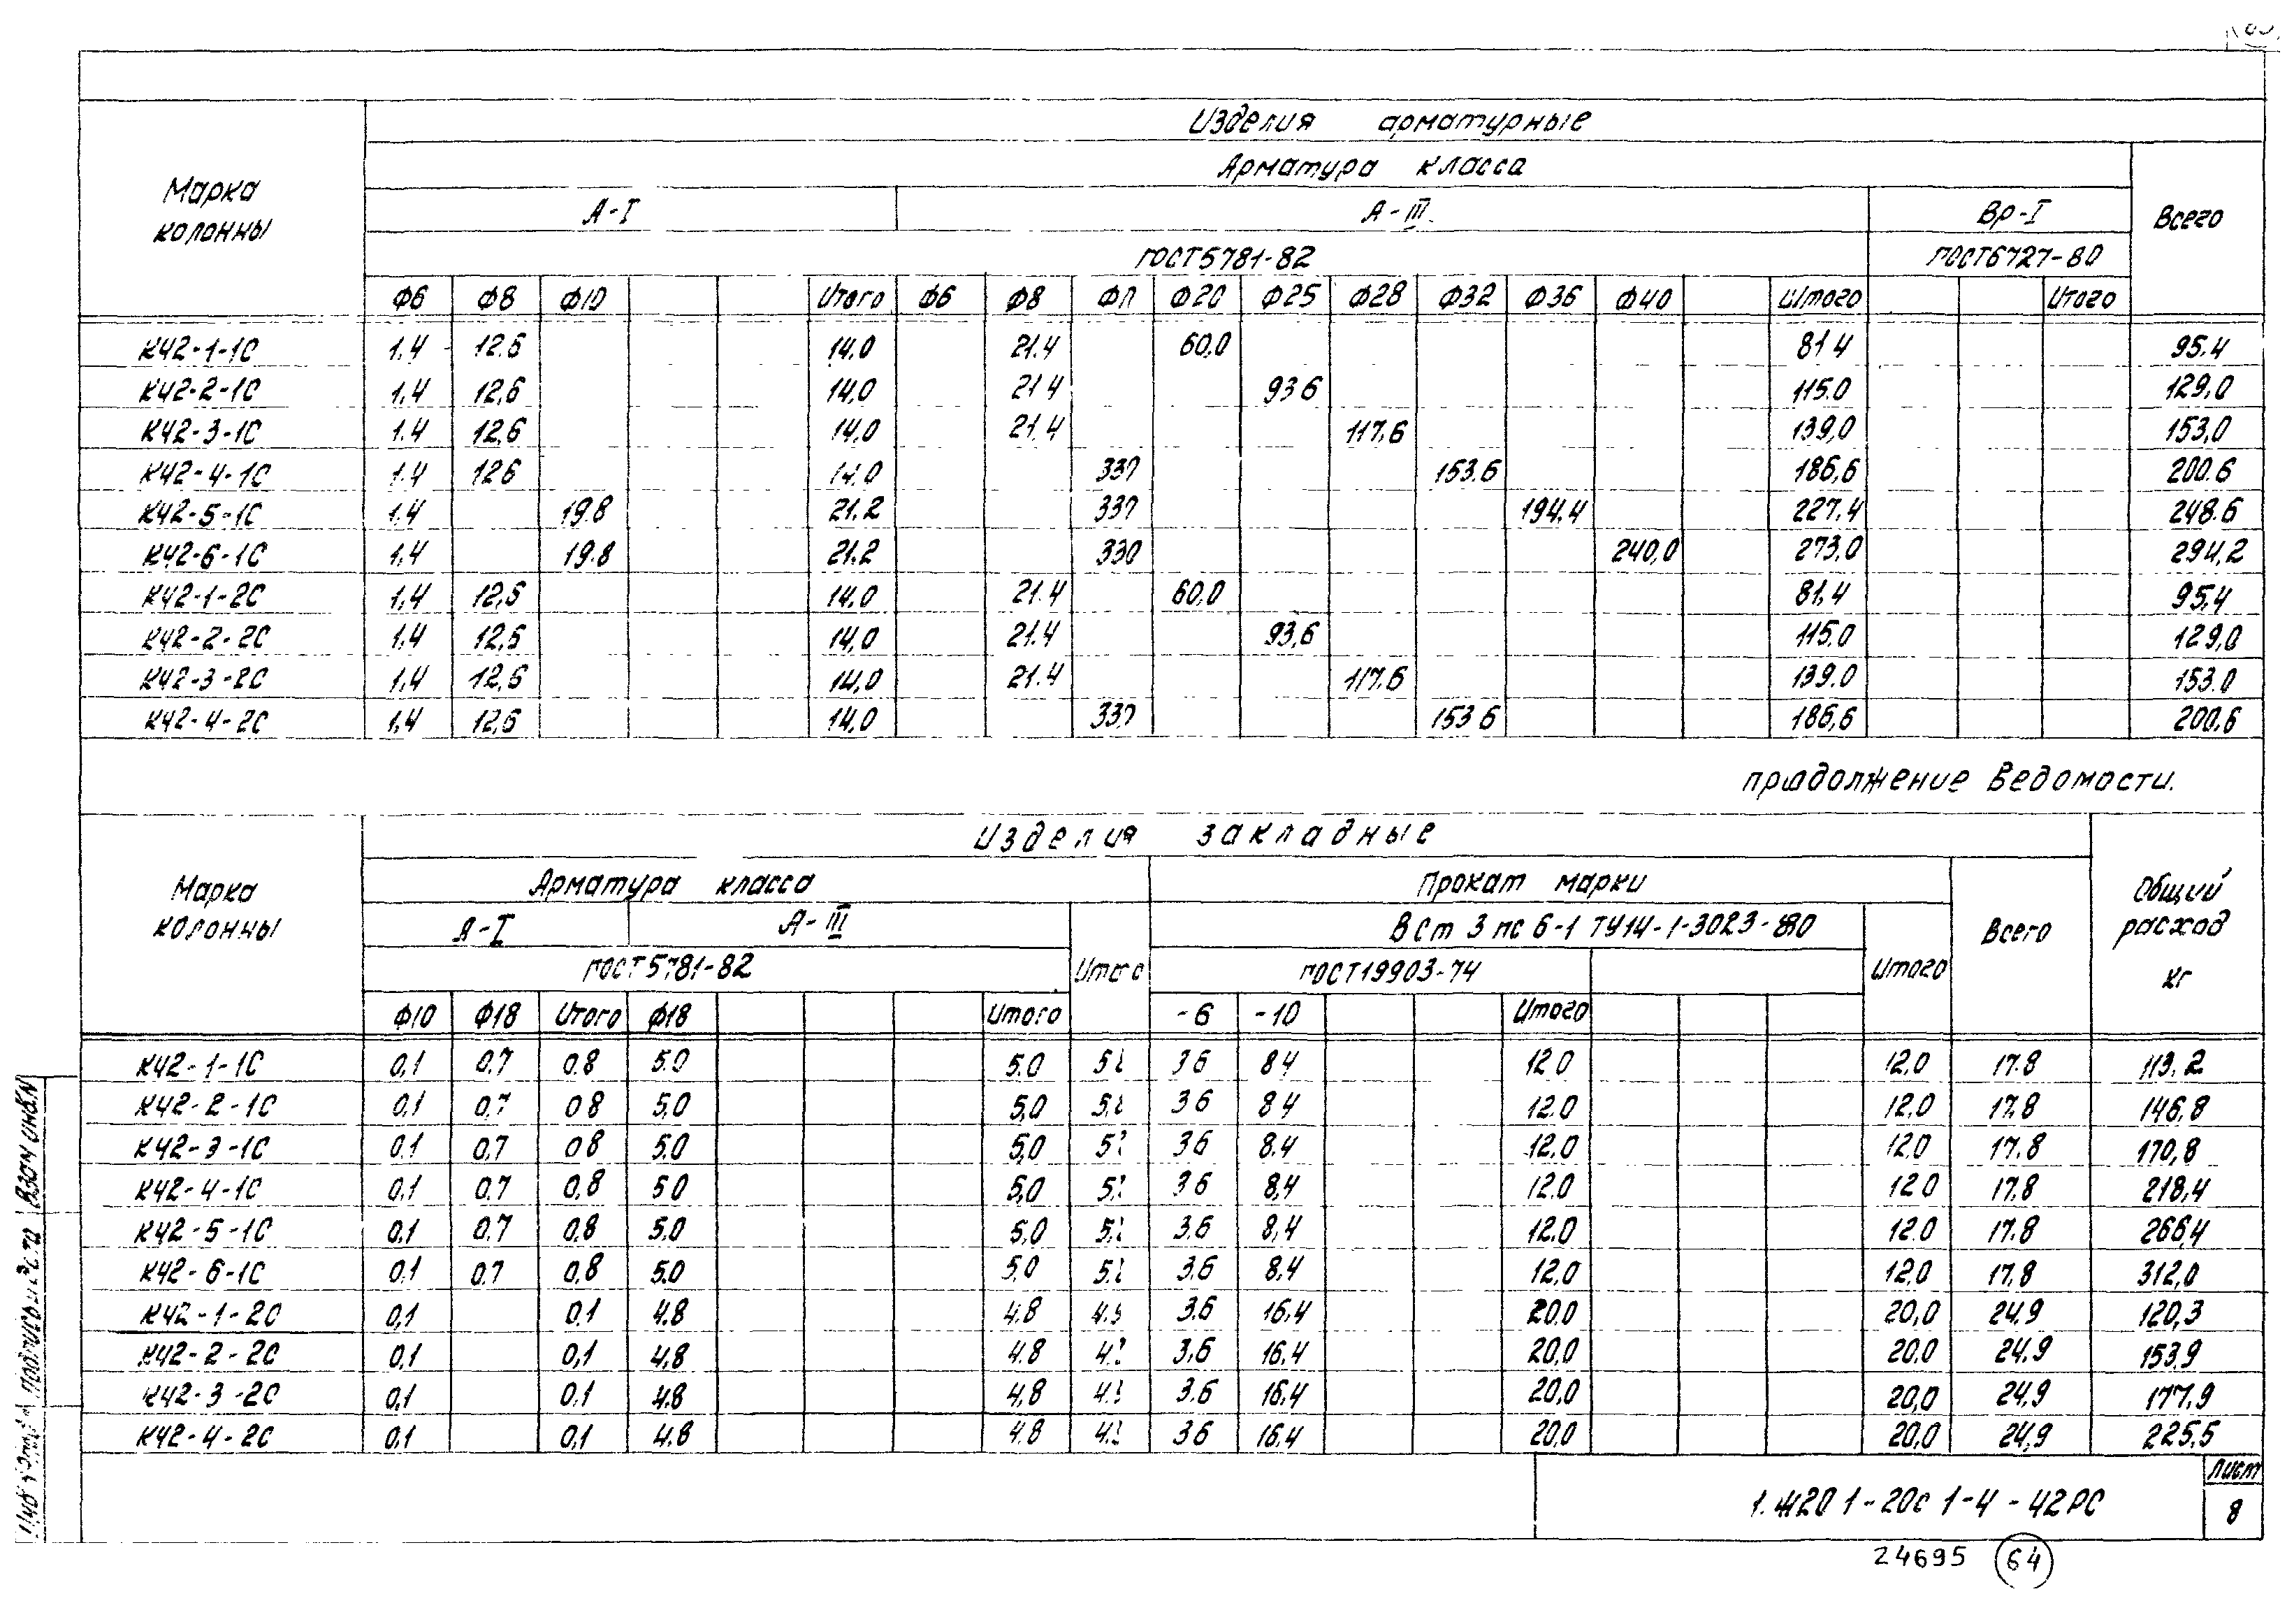 Марка колонны
Изделия арматурные
Арматура класса
А-I А-III Вр-I Всего
ГОСТ5781-82 ГОСТ6727-80
Ф6 Ф8 Ф10 Итого Ф6 Ф8 Ф20 Ф25 Ф28 Ф32 Ф36 Ф40 Итого Итого
К42-1-1С 1.4 12.6 14.0 21.4 60,0 81 4 95.4
К42-2-1С 1.4 12,6 14,0 21 4 93 6 115.0 129,0
К42-3-1С 1.4 12,6 14,0 21.4 117,6 139,0 153,0
К42-4-1С 1.4 12 6 14.0 153.6 186,6 200.6
К42-5-1С 1.4 19.8 21.2 194.4 227.4 248.6
К42-6-1С 1.4 19.8 21.2 330 240,0 273,0 294,2
К42-1-2С 1,4 12,6 14,0 21.4 60,0 81,4 95,4
К42-2-2С 1.4 12,6 14,0 21.4 93,6 115.0 129,0
К42-3-2С 1,4 12,6 14,0 21.4 117.6 139.0 153.0
К42-4-2С 1,4 12,6 14,0 153 6 186,6 200,6
продолжение Ведомости.
Марка колонны
Изделия закладные
Арматура класса Прокат марки
А-I А-III Итого ВСт 3 пс 6-1 ТУ14-1-3023-80 Итого Всего Общий расход кг
ГОСТ5781-82 ГОСТ19903-74
Ф10 Ф18 Итого Ф18 Итого -6 -10 Итого
К42-1-1С 0,1 0.7 0.8 5.0 5.0 3 6 8 4 12 0 12,0 17.8 113.2
К42-2-1С 0,1 0,7 0 8 5,0 5,0 3 6 8 4 12.0 12,0 17,8 146,8
К42-3-1С 0.1 0,7 0 8 5.0 5,0 3 6 8.4 12,0 12,0 17.8 170,8
К42-4-1С 0,1 0.7 0,8 5 0 5,0 3 6 8,4 12.0 12 0 17.8 218,4
К42-5-1С 0,1 0.7 0,8 5.0 5,0 3.6 8,4 12.0 12.0 17.8 266,4
К42-6-1С 0,1 0.7 0,8 5.0 5.0 3.6 8.4 12,0 12,0 17,8 312,0
К42-1-2С 0,1 0.1 4.8 4.8 3.6 16,4 20.0 20,0 24.9 120,3
К42-2-2С 0,1 0,1 4,8 4.8 3,6 16,4 20,0 20.0 24.9 153.9
К42-3-2С 0,1 0,1 4.8 4,8 3.6 16,4 20,0 20,0 24,9 177,9
К42-4-2С 0,1 0,1 4.8 4.8 3 6 16.4 20,0 20,0 24,9 225,5
Лист
1.420 1-20с 1-4-42РС 8
24695 64